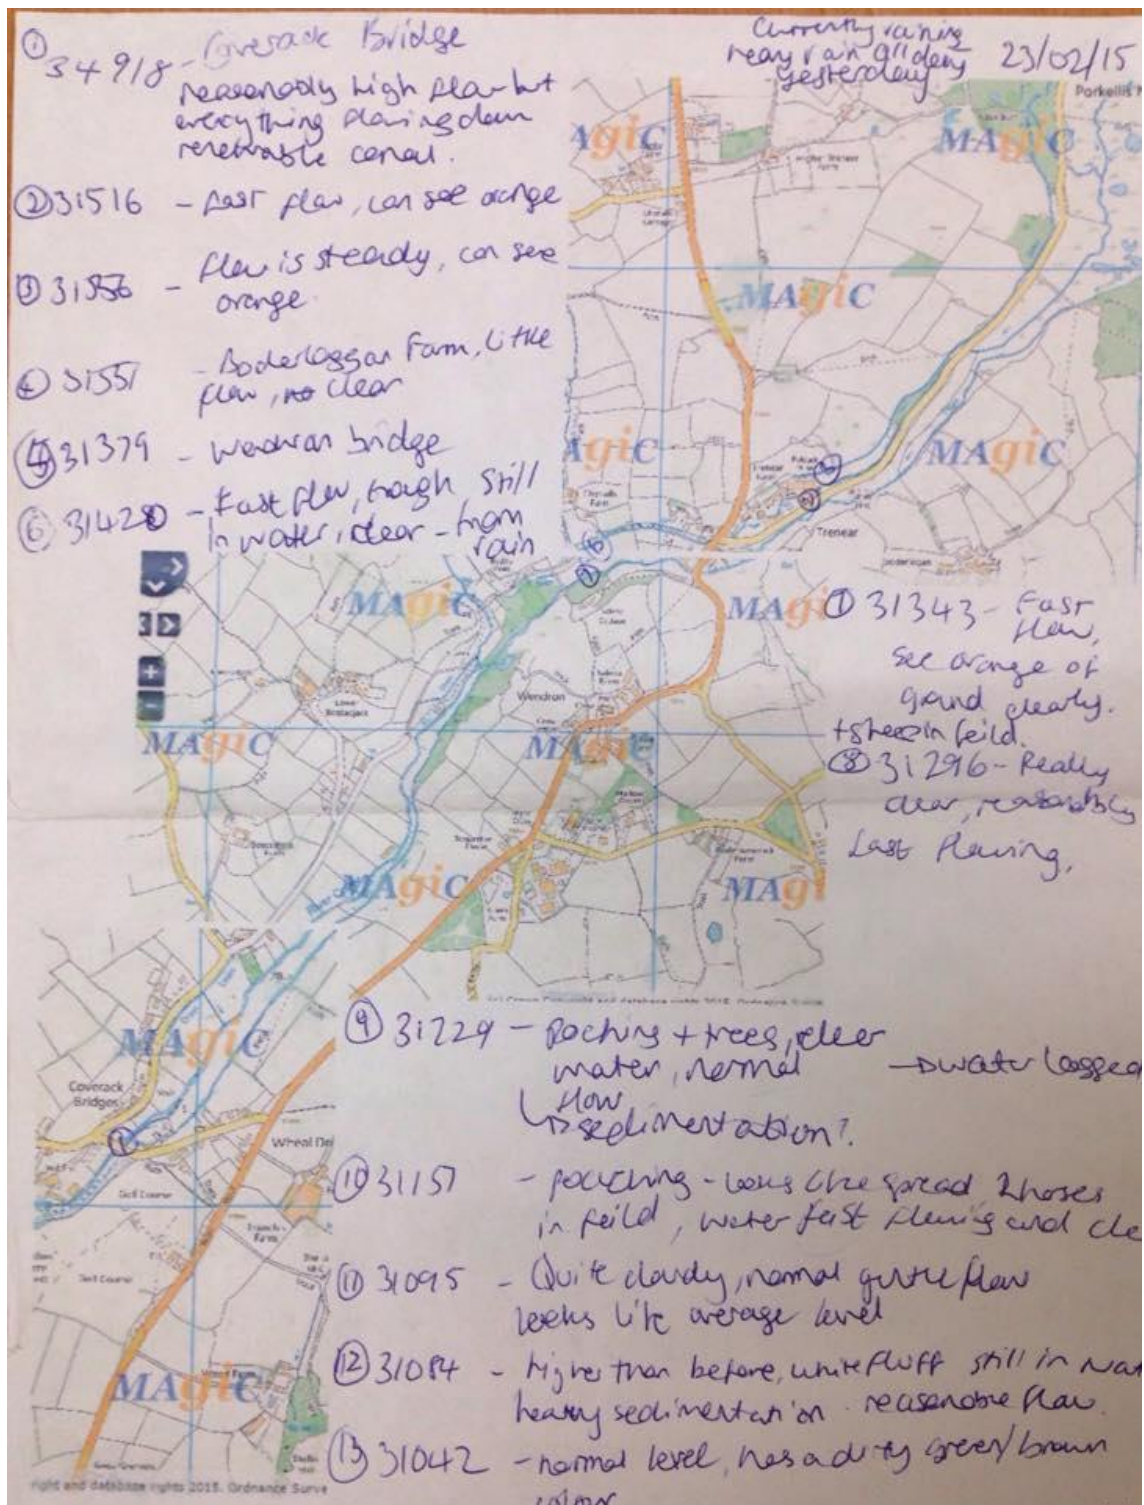 Currently raining
heavy rain all day
yesterday
23/02/15
① 34918 - Coverack Bridge
reasonably high flow but
everything flowing down
renewable canal.
② 31516 - Fast flow, can see orange
③ 31556 - flow is steady, can see
orange.
④ 31551 - Boderloggan Farm, little
flow, clear
⑤ 31379 - Wendron bridge
⑥ 31420 - Fast flow, trough still
in water, clear - from
rain
⑦ 31343 - Fast
flow,
see orange of
ground clearly.
+ sheep in feild.
⑧ 31296 - Really
clear, reasonably
fast flowing,
⑨ 31229 - poching + trees, clear
water, normal → water logged
flow
↳ sedimentation?
⑩ 31151 - pouching - looks like spread, 2 horses
in feild, water fast flowing and cle
⑪ 31095 - Quite cloudy, normal gentle flow
looks like average level
⑫ 31084 - higher than before, white fluff still in wat
heavy sedimentation. reasonable flow.
⑬ 31042 - normal level, has a dirty green/brown
colour
MAgiC
MAgiC
MAgiC
MAgiC
MAgiC
Trenear
MAgiC
MAgi
Wendron
MAgiC
MAgiC
MAgiC
MAgi
MAgiC
Coverack
Bridges
Golf Course
Golf Course
MAgiC
right and database rights 2015. Ordnance Surve